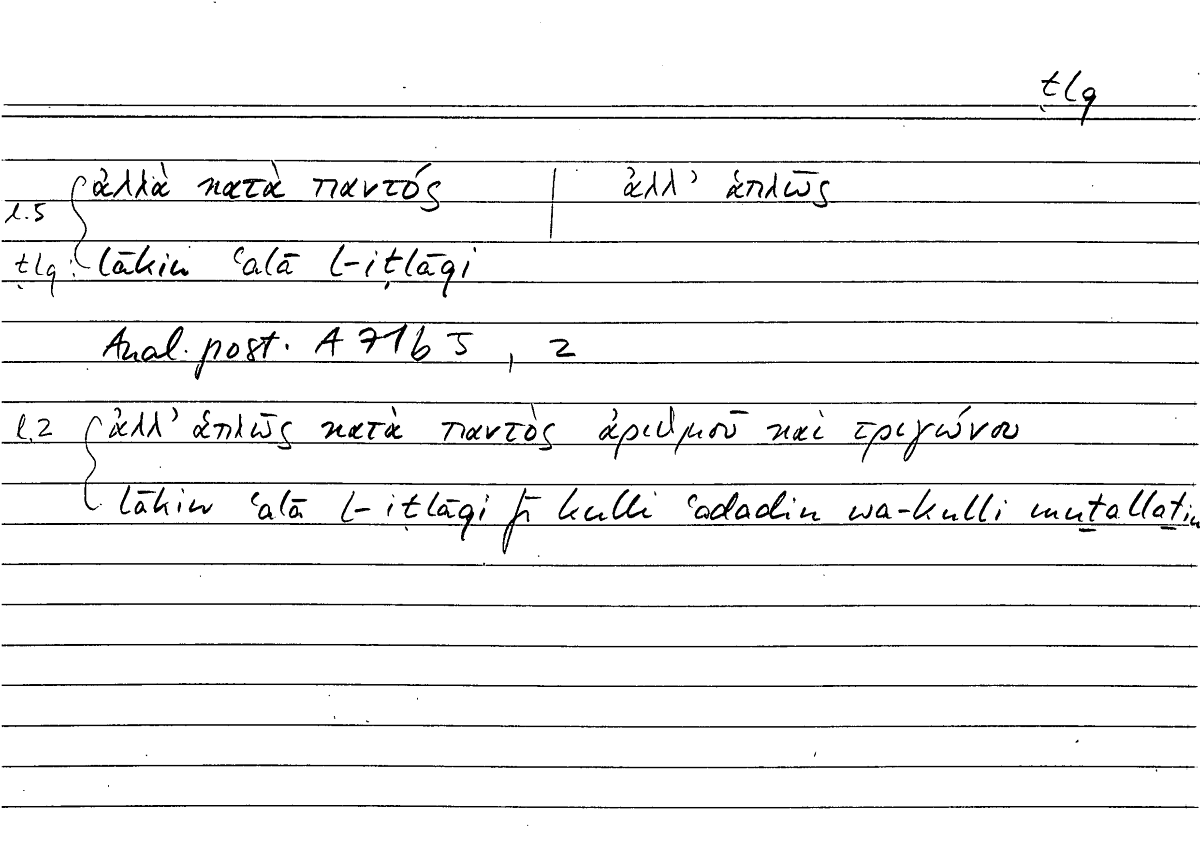 ṭlq
l.5 ἀλλὰ κατὰ παντός | ἀλλ' ἁπλῶς
ṭlq: lākin ʿalā l-iṭlāqi
Anal. post. A 71b 5, 2
l.2 ἀλλ' ἁπλῶς κατὰ παντὸς ἀριθμοῦ καὶ τριγώνου
lākin ʿalā l-iṭlāqi fī kulli ʿadadin wa-kulli muṯallaṯin